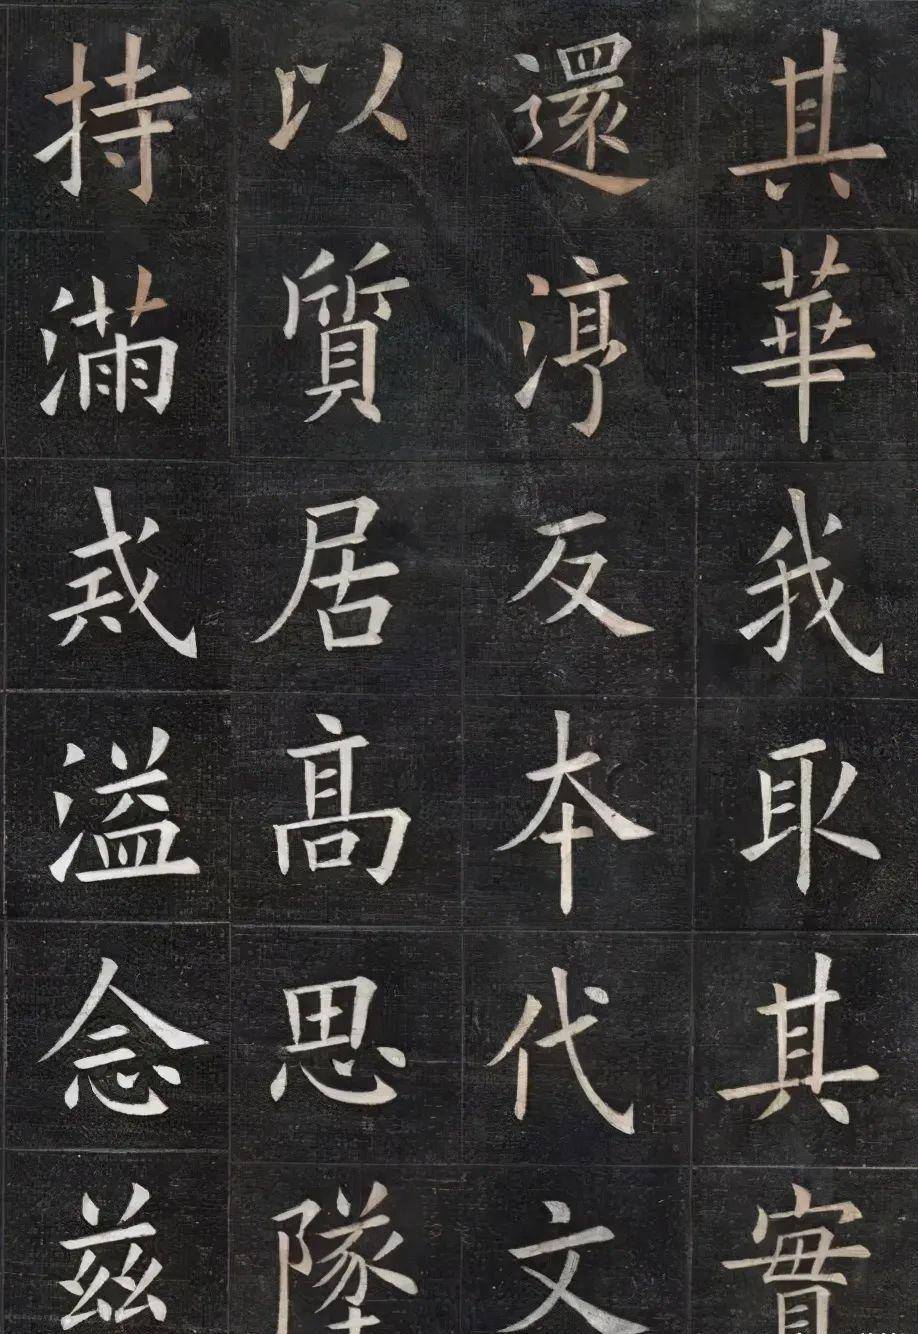 其華我取其實
還淳反本代文
以質居髙思墜
持滿戒溢念兹